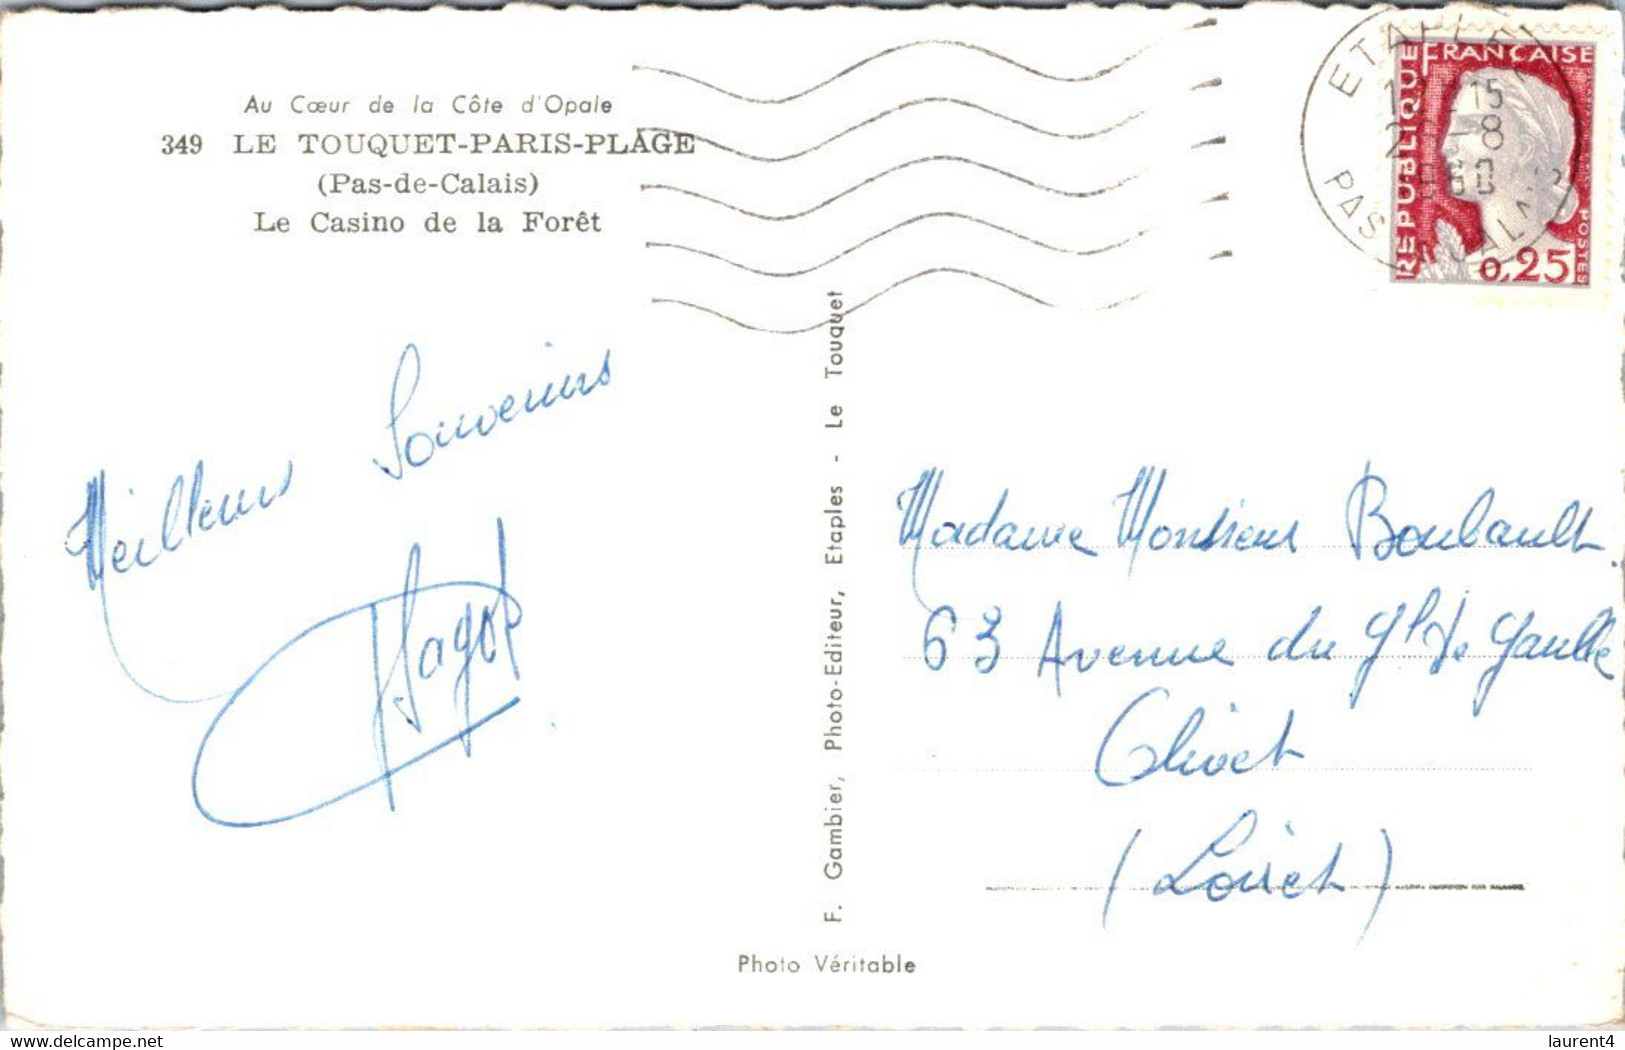 Au Cœur de la Côte d'Opale
349 LE TOUQUET-PARIS-PLAGE
(Pas-de-Calais)
Le Casino de la Forêt
Meilleurs Souvenirs
F. Gambier, Photo-Editeur, Etaples - Le Touquet
Photo Véritable
ETAPLES
15
8
PAS
REPUBLIQUE FRANÇAISE
POSTES
0,25
Madame Monsieur Boubault
63 Avenue du Gl de Gaulle
Olivet
(Loiret)
delcampe.net
laurent4